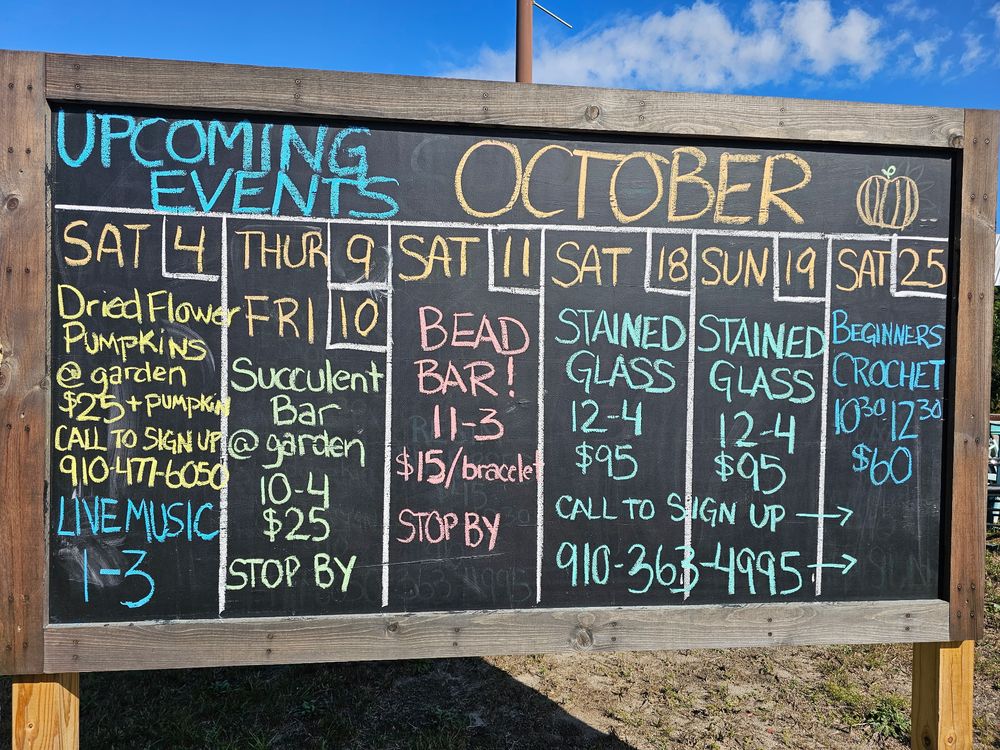 UPCOMING
EVENTS
OCTOBER
SAT 4
Dried Flower
Pumpkins
@ garden
$25 + pumpkin
CALL TO SIGN UP
910-477-6050
LIVE MUSIC
1-3
THUR 9
FRI 10
Succulent
Bar
@ garden
10-4
$25
STOP BY
SAT 11
BEAD
BAR!
11-3
$15/bracelet
STOP BY
SAT 18
STAINED
GLASS
12-4
$95
SUN 19
STAINED
GLASS
12-4
$95
CALL TO SIGN UP →
910-363-4995 →
SAT 25
BEGINNERS
CROCHET
10³⁰ 12³⁰
$60